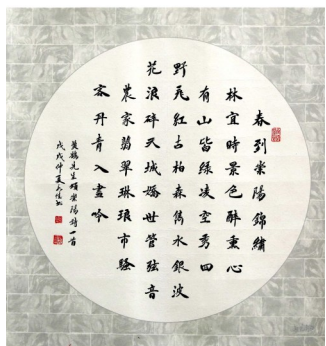 春到崇陽錦繡
林宜時景色醉熏心
有山皆綠凌空秀四
野飛紅古柏森雋水銀波
花浪碎天城嬌世管弦音
農家翡翠琳琅市騷
客丹青入畫吟
黄鶴先生頌崇陽詩一首
戊戌仲夏